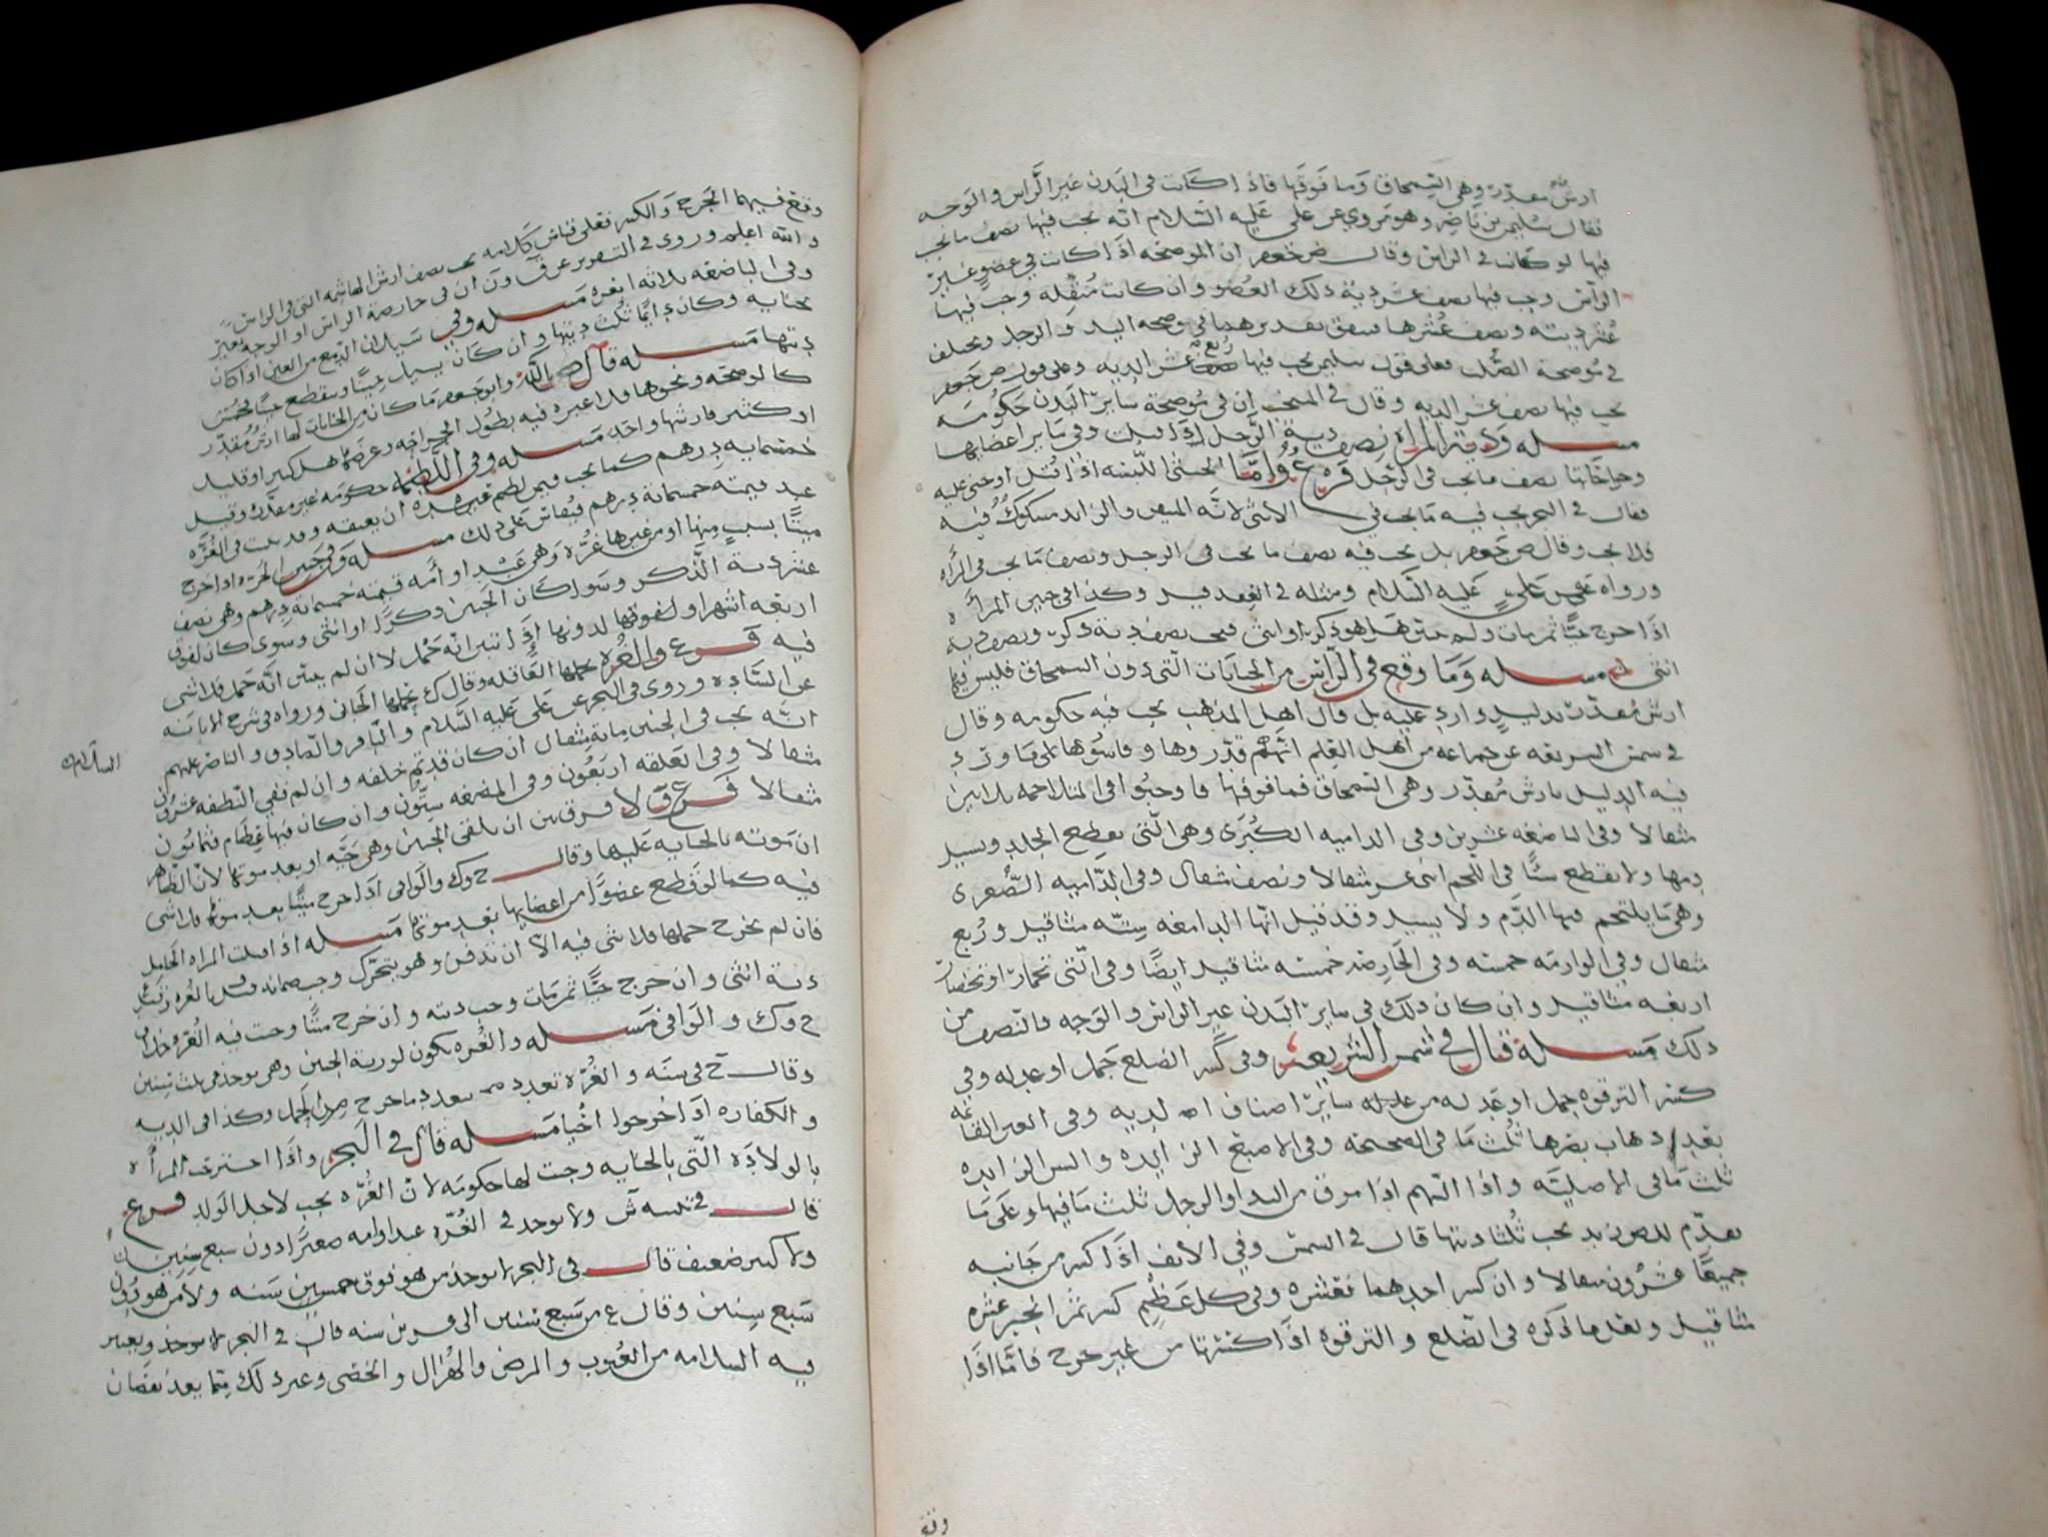 ارش مقدر وهي السمحاق وما فوقها فاذا كانت في البدن غير الراس والوجه
فقال سليمن بن ناصر وهو مروي عن علي عليه السلام انه يجب فيها نصف ما يجب
فيها لو كانت في الراس وقال ض جعفر ان الموضحه اذا كانت في عضو غير
الراس وجب فيها نصف عشر دية ذلك العضو وان كانت منقله وجب فيها
عشر ديته ونصف عشرها فيتفق تقديرهما في موضحه اليد والرجل ويختلف
في موضحة الصلب فعلى قول سليمن يجب فيها ربع عشر الديه وعلى قول ض جعفر
يجب فيها نصف عشر الديه وقال في المنتخب ان في موضحة سائر البدن حكومه
مسله ودية المراه نصف دية الرجل اذا قتلت وفي ساير اعضايها
وجراحاتها نصف ما يجب في الرجل فرع واما الخنثى اللبسه اذا قتل او جني عليه
فقال في البحر يجب فيه ما يجب في الانثى لانه المتيقن والزايد مشكوك فيه
فلا يجب وقال ض جعفر بل يجب فيه نصف ما يجب في الرجل ونصف ما يجب في المراه
ورواه عن علي عليه السلام ومثله في العقد قيل وكذا في جنين المراه
اذا خرج حيا ثم مات ولم يتبين هل هو ذكر او انثى ففيه نصف دية ذكر ونصف دية
انثى مسله وما وقع في الراس من الجنايات التي دون السمحاق فليس فيها
ارش مقدر بدليل وارد عليه بل قال اهل المذهب يجب فيه حكومه وقال
في شمس الشريعه عن جماعه من اهل العلم انهم قدروها وقاسوها على ما ورد
فيه الدليل بارش مقدر وهي السمحاق فما فوقها فاوجبوا في المتلاحمه ثلاثين
مثقالا وفي الباضعه عشرين وفي الداميه الكبرى وهي التي تقطع الجلد ويسيل
دمها ولا تقطع شيئا في اللحم اثنى عشر مثقالا ونصف مثقال وفي الداميه الصغرى
وهي ما يلتحم فيها الدم ولا يسيل وقد قيل انها الدامغه سته مثاقيل وربع
مثقال وفي الوارمه خمسه وفي الحارصه خمسه مثاقيل ايضا وفي التي تحمار او تخضار
اربعه مثاقيل وان كان ذلك في ساير البدن غير الراس والوجه فالنصف من
ذلك مسله قال في شمس الشريعه وفي كسر الضلع جمل او عدله وفي
كسر الترقوه جمل او عدله من ساير اصناف الديه وفي العين القائمه
بعد ذهاب بصرها ثلث ما في الصحيحه وفي الاصبع الزايده والسن الزايده
ثلث ما في الاصليه واذا السهم اذا مرق من اليد او الرجل ثلث ما فيها وعلى ما
تقدم يجب ثلثا ديتها قال في الشمس وفي الانف اذا كسر من جانبيه
جميعا عشرون مثقالا وان كسر احدهما فعشره وفي كل عظم كسر ثم انجبر عشره
مثاقيل وتقدم ما ذكره في الضلع والترقوه اذا كسرتها من غير جرح فاما اذا
وقع
وقع فيهما الجرح والكسر فعلى قياس كلامه يجب نصف ارش الهاشمه التي في الراس
والله اعلم وروي في التقرير عن ق ون ان في حارصة الراس او الوجه بعير
وفي الباضعه ثلاثه ابعره مسله وفي سيلان الدمع من العين اذا كان
بجنايه وكان دائما ثلث ديتها وان كان يسيل حينا وينقطع حينا فخمس
ديتها مسله قال ص بالله وابو جعفر ما كان من الجنايات لها ارش مقدر
كالموضحه ونحوها فلا عبره فيه بطول الجراحه وعرضها هل كبير او قليل
او كثير فارشها واحد مسله وفي اللطمه حكومه غير مقدره وقيل
خمسمايه درهم كما يجب فيمن لطم عبده ان يعتقه وقد ثبت في الغره
عبد قيمته خمسمائة درهم فيقاس على ذلك مسله وفي جنين الحره اذا خرج
ميتا بسبب منها او من غيرها غره وهي عبد او امه قيمته خمسمائة درهم وهي نصف
عشر دية الذكر وسوا كان الجنين ذكرا او انثى وسوى كان لفوق
اربعه اشهر او لفوقها لدونها اذا تبين انه حمل لا ان لم يتبين انه حمل فلا شي
فيه فرع والغره تحملها العاقله وقال ك يحملها الجاني ورواه في شرح الابانه
عن الساده وروي في البحر عن علي عليه السلام والباقر والصادق والناصر عليهم
السلام
انه يجب في الجنين ماية مثقال ان كان قد تم خلقه وان لم ففي النطفه عشرون
مثقالا وفي العلقه اربعون وفي المضغه ستون وان كان فيها عظام فثمانون
مثقالا فرع ولا فرق بين ان يلقى الجنين وهي حيه او بعد موتها لان الظاهر
ان موته بالجنايه عليها وقال ح وك والوافي اذا خرج ميتا بعد موتها فلا شي
فيه كما لو قطع عضوا من اعضايها بعد موتها مسله اذا قتلت المراه الحامل
فان لم يخرج حملها فلا شي فيه الا ان تدفن وهو يتحرك وجب ضمانه
دية انثى وان خرج حيا ثم مات وجب ديته وان خرج ميتا وجب فيه الغره خلاف
ح وك والوافي مسله والغره تكون لورثة الجنين وهي توخذ في ثلث سنين
وقال ح في سنه والغره تعدد بتعدد ما خرج من الحمل وكذا في الديه
والكفاره اذا خرجوا احيا مسله قال في البحر واذا احترقت المراه
بالولاده التي بالجنايه وجبت لها حكومه لان الغره يجب لاجل الولد فرع
قال ولا يوخذ في الغره عبد او امه صغيرا دون سبع سنين
ولا كبير ضعيف قال في البحر لا يوخذ من هو فوق خمسين سنه ولا من هو دون
سبع سنين وقال ع من سبع سنين الى عشرين سنه قال في البحر لا يوخذ ويعتبر
فيه السلامه من العيوب والمرض والهزال والخصي وغير ذلك مما يعد نقصان